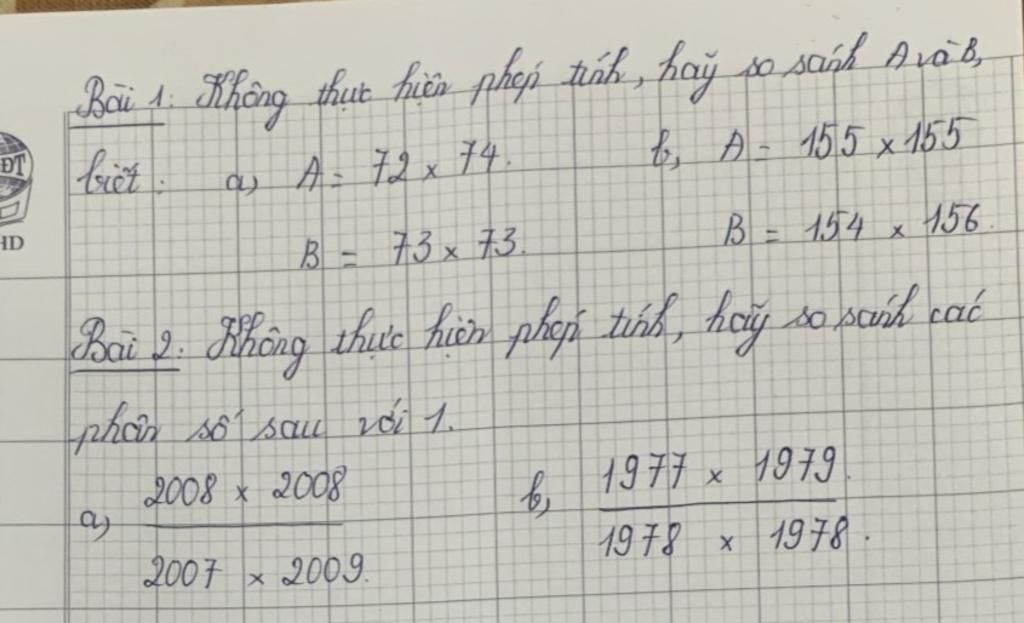 Bài 1: Không thực hiện phép tính, hãy so sánh A và B,
ĐT
biết: a, A = 72 x 74. b, A = 155 x 155
HD
B = 73 x 73. B = 154 x 156.
Bài 2: Không thực hiện phép tính, hãy so sánh các
phân số sau với 1.
a, 2008 x 2008 b, 1977 x 1979.
2007 x 2009. 1978 x 1978.